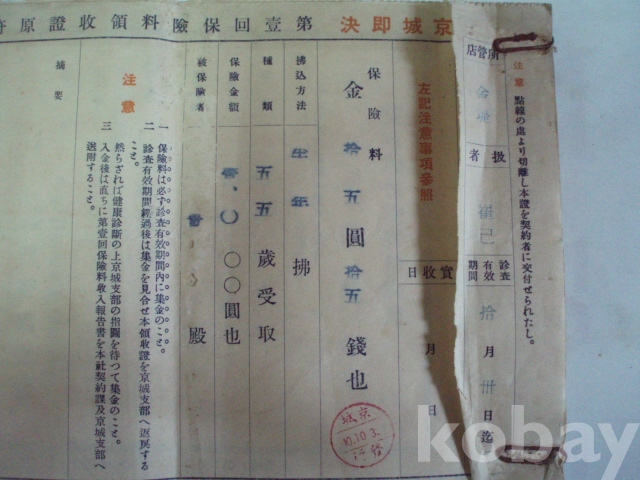 注意 點線の處より切離し本證を契約者に交付せられたし。
所管店
扱者
診査有效期間 拾月卅日迄
京城即決 第壹回保險料領收證原符
左記注意事項參照
實收日 月 日
保險料
金拾五圓拾五錢也
京城
10.10.3.
拂込方法 年拂
種類 五五歲受取
保險金額 壹,〇〇〇圓也
被保險者 殿
注意
一 保險料は必ず診査有效期間內に集金のこと。
二 診査有效期間經過後は集金を見合せ本領收證を京城支部へ返戾すること。
然らざれば健康診斷の上京城支部の指圖を待つて集金のこと。
三 入金後は直ちに第壹回保險料收入報告書を本社契約課及京城支部へ送附すること。
摘要
kobay